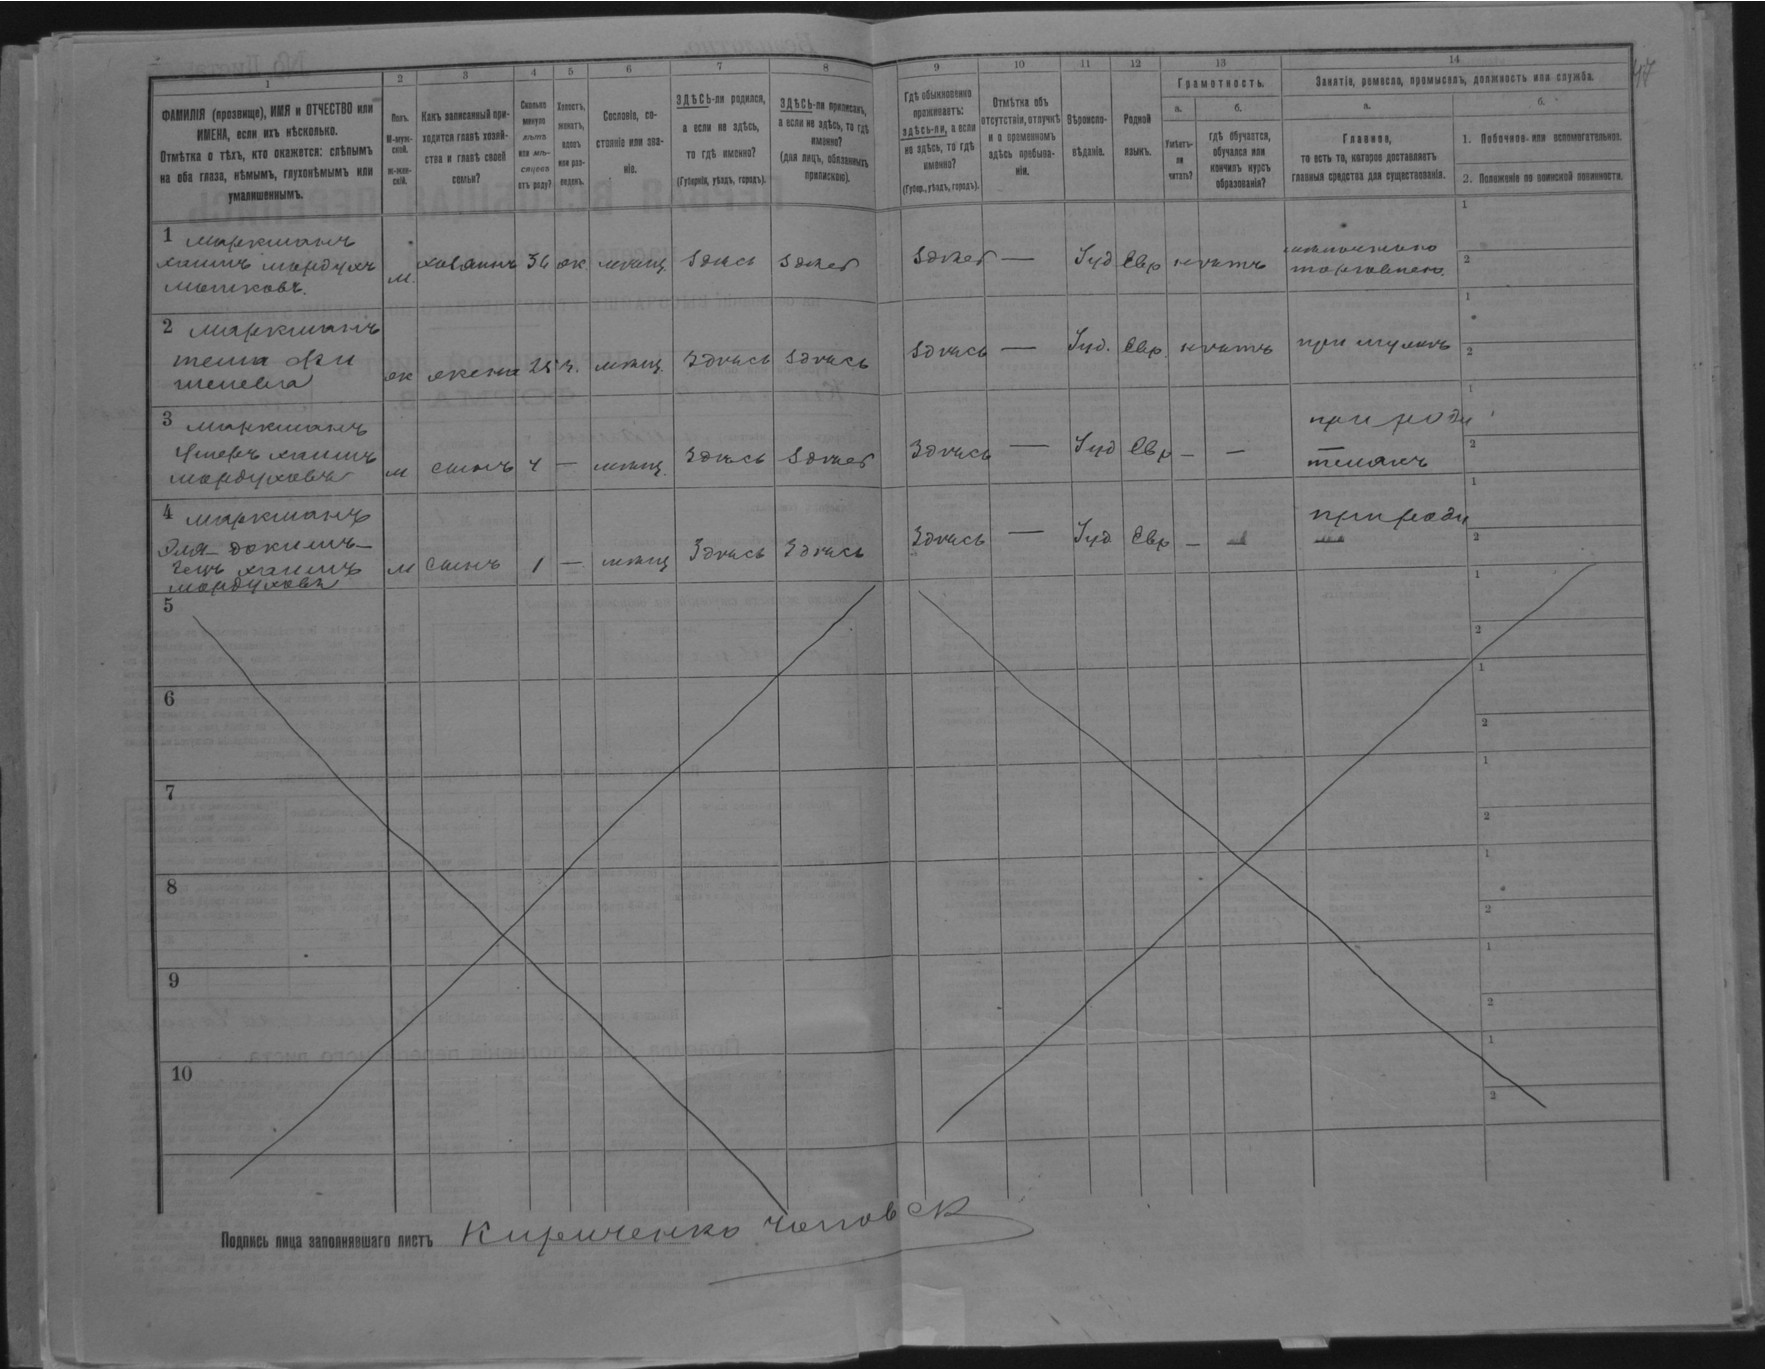 47
1 2 3 4 5 6 7 8 9 10 11 12 13 14
ФАМИЛІЯ (прозвище), ИМЯ и ОТЧЕСТВО или
ИМЕНА, если ихъ нѣсколько.
Отмѣтка о тѣхъ, кто окажется: слѣпымъ
на оба глаза, нѣмымъ, глухонѣмымъ или
умалишеннымъ.
Полъ.
М-муж-
ской.
ж-жен-
скій.
Какъ записанный при-
ходится главѣ хозяй-
ства и главѣ своей
семьи?
Сколько
минуло
лѣтъ
или мѣ-
сяцевъ
отъ роду?
Холостъ,
женатъ,
вдовъ
или раз-
веденъ.
Сословіе, со-
стояніе или зва-
ніе.
ЗДѢСЬ-ли родился,
а если не здѣсь,
то гдѣ именно?
(Губернія, уѣздъ, городъ).
ЗДѢСЬ-ли приписанъ,
а если не здѣсь, то гдѣ
именно?
(для лицъ, обязанныхъ
припискою).
Гдѣ обыкновенно
проживаетъ:
здѣсь-ли, а если
не здѣсь, то гдѣ
именно?
(Губер., уѣздъ, городъ).
Отмѣтка объ
отсутствіи, отлучкѣ
и о временномъ
здѣсь пребыва-
ніи.
Вѣроиспо-
вѣданіе.
Родной
языкъ.
Грамотность.
а.
Умѣетъ-
ли
читать?
б.
гдѣ обучается,
обучался или
кончилъ курсъ
образованія?
Занятіе, ремесло, промыселъ, должность или служба.
а.
Главное,
то есть то, которое доставляетъ
главныя средства для существованія.
б.
1. Побочное или вспомогательное.
2. Положеніе по воинской повинности.
1 Маркманъ
хаимъ мордухъ
мошковъ.
м. хозяинъ 36 ж. мѣщ. Здѣсь Здѣсь Здѣсь — Іуд Евр
торговлею
1
2
2 Маркманъ
ж жена 25 з. мѣщ. Здѣсь Здѣсь Здѣсь — Іуд. Евр. при мужѣ
1
2
3 Маркманъ
хаимъ
мордуховъ
м сынъ 4 — мѣщ. Здѣсь Здѣсь Здѣсь — Іуд Евр — — при роди
теляхъ
1
2
4 Маркманъ
хаимъ
мордуховъ
м сынъ 1 — мѣщ Здѣсь Здѣсь Здѣсь — Іуд Евр — при роди
1
2
5
1
2
6
1
2
7
1
2
8
1
2
9
1
2
10
1
2
Подпись лица заполнявшаго листъ Кириченко